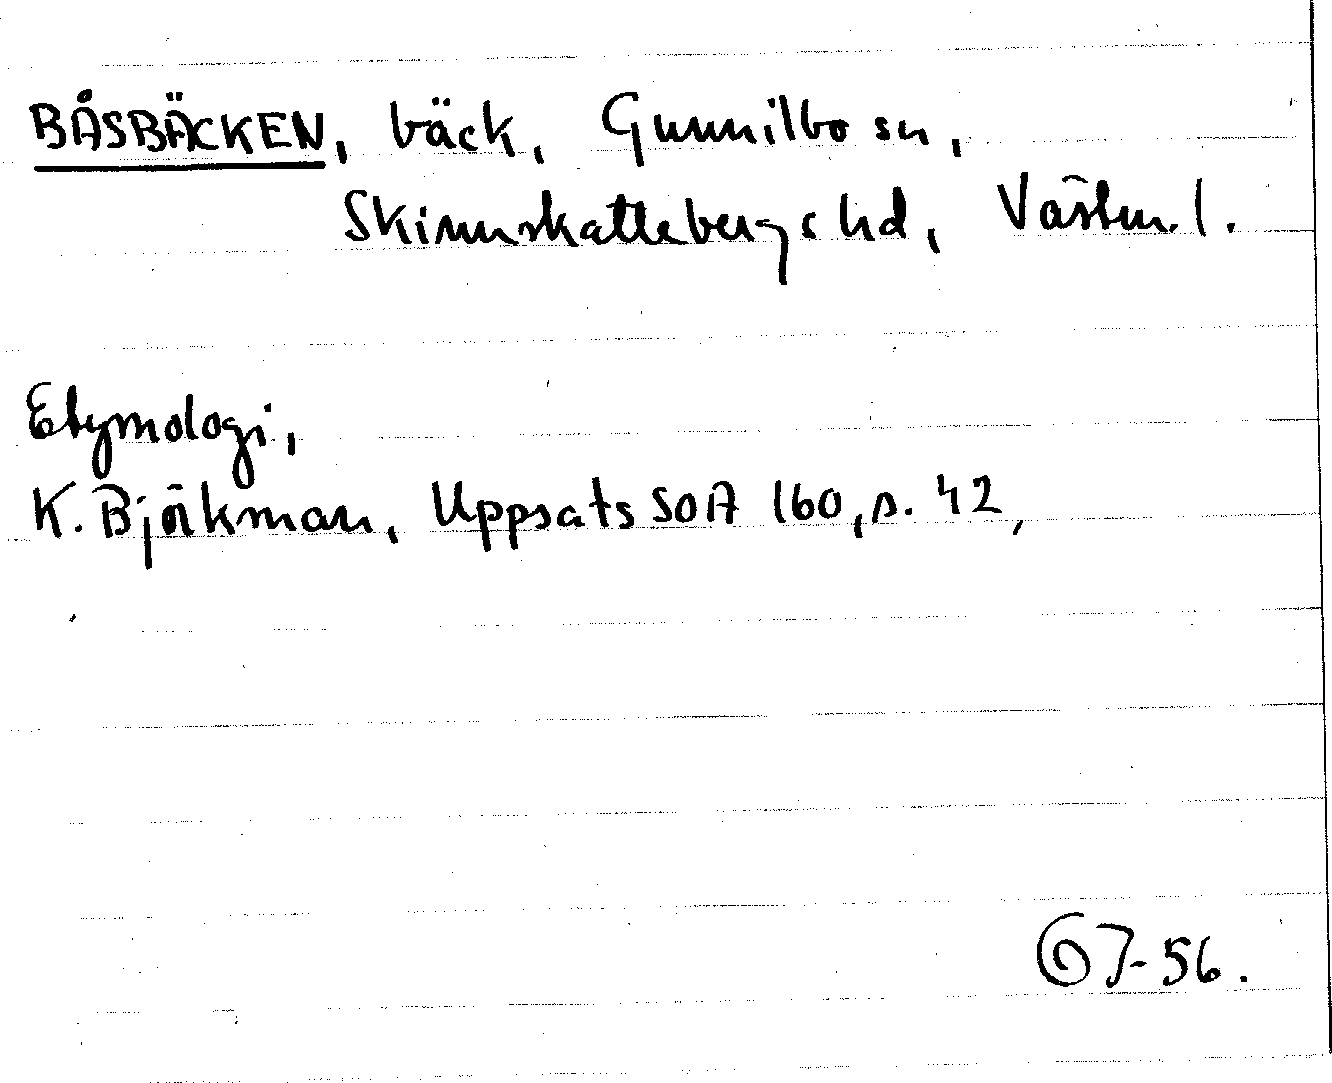 BÅSBÄCKEN, bäck, Gunnilbo sn,
Skinnskattebergs hd, Västm. l.
Etymologi,
K. Björkman, Uppsats SOA 160, s. 42,
67-56.